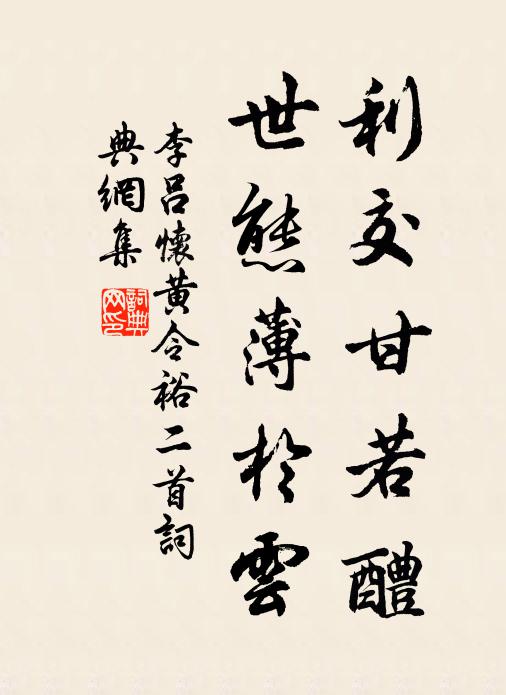 利交甘若醴
世態薄於雲
李呂懷黃令裕二首詞
典網集
詞典
网印